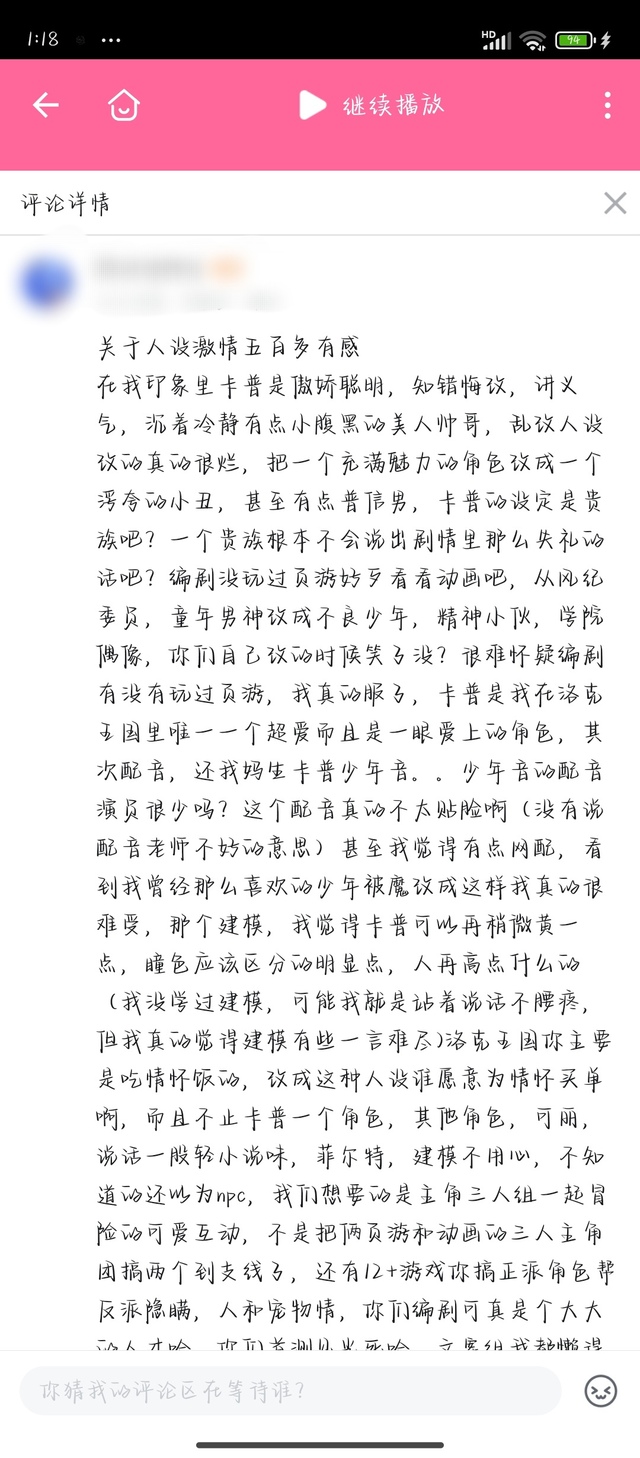 1:18
HD
94
继续播放
评论详情
关于人设激情五百多有感
在我印象里卡普是傲娇聪明，知错悔改，讲义
气，沉着冷静有点小腹黑的美人帅哥，乱改人设
改的真的很烂，把一个充满魅力的角色改成一个
浮夸的小丑，甚至有点普信男，卡普的设定是贵
族吧？一个贵族根本不会说出剧情里那么失礼的
话吧？编剧没玩过页游好歹看看动画吧，从风纪
委员，童年男神改成不良少年，精神小伙，学院
偶像，你们自己改的时候笑了没？很难怀疑编剧
有没有玩过页游，我真的服了，卡普是我在洛克
王国里唯一一个超爱而且是一眼爱上的角色，其
次配音，还我妈生卡普少年音。。少年音的配音
演员很少吗？这个配音真的不太贴脸啊（没有说
配音老师不好的意思）甚至我觉得有点网配，看
到我曾经那么喜欢的少年被魔改成这样我真的很
难受，那个建模，我觉得卡普可以再稍微黄一
点，瞳色应该区分的明显点，人再高点什么的
（我没学过建模，可能我就是站着说话不腰疼，
但我真的觉得建模有些一言难尽)洛克王国你主要
是吃情怀饭的，改成这种人设谁愿意为情怀买单
啊，而且不止卡普一个角色，其他角色，可丽，
说话一股轻小说味，菲尔特，建模不用心，不知
道的还以为npc，我们想要的是主角三人组一起冒
险的可爱互动，不是把俩页游和动画的三人主角
团搞两个到支线了，还有12+游戏你搞正派角色帮
反派隐瞒，人和宠物情，你们编剧可真是个大大
你猜我的评论区在等待谁？